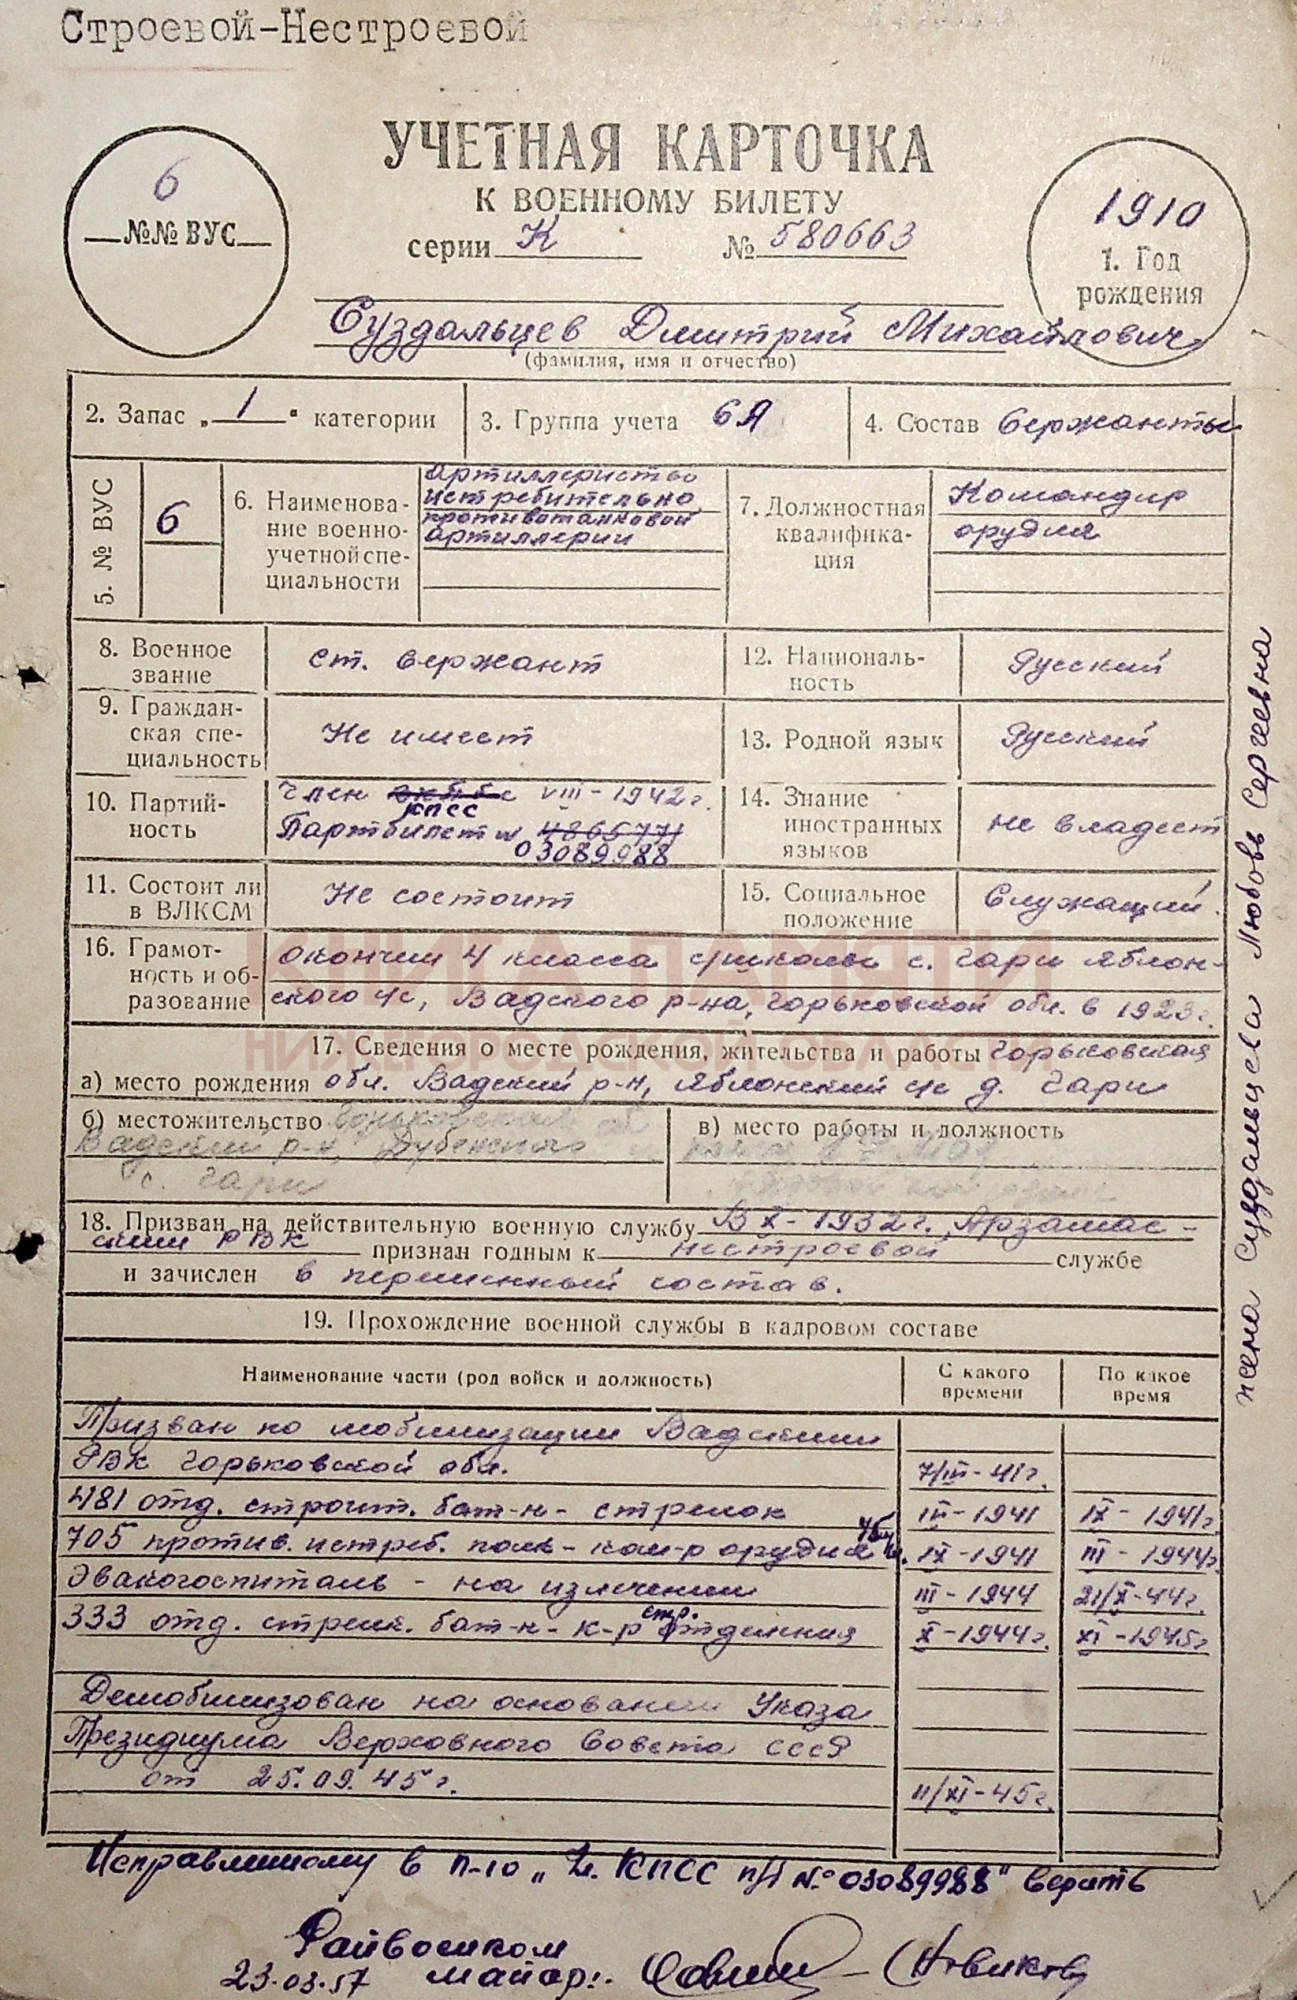 Строевой-Нестроевой
УЧЕТНАЯ КАРТОЧКА
К ВОЕННОМУ БИЛЕТУ
серии К № 580663
6
№№ ВУС
1910
1. Год
рождения
Суздальцев Дмитрий Михайлович
(фамилия, имя и отчество)
2. Запас „ 1 “ категории
3. Группа учета 6Я
4. Состав Сержанты
5. № ВУС
6
6. Наименова-
ние военно-
учетной спе-
циальности
артиллериство
истребительно
противотанковой
артиллерии
7. Должностная
квалифика-
ция
Командир
орудия
8. Военное
звание
ст. сержант
9. Граждан-
ская спе-
циальность
Не имеет
10. Партий-
ность
Член вкпбс VIII-1942г.
кпсс
Партбилет № 4865771
03089988
11. Состоит ли
в ВЛКСМ
Не состоит
12. Националь-
ность
Русский
13. Родной язык
Русский
14. Знание
иностранных
языков
не владеет
15. Социальное
положение
Служащий
16. Грамот-
ность и об-
разование
окончил 4 класса с/школы с. Гари Яблон-
ского с/с, Вадского р-на, Горьковской обл. в 1923г.
КНИГА ПАМЯТИ
НИЖЕГОРОДСКОЙ ОБЛАСТИ
17. Сведения о месте рождения, жительства и работы Горьковская
а) место рождения обл. Вадский р-н, Яблонский с/с д. Гари
б) местожительство Горьковская об
Вадский р-н, Дубенского
с. Гари
в) место работы и должность
18. Призван на действительную военную службу В X-1932г. Арзамас-
ским РВК признан годным к нестроевой службе
и зачислен в переменный состав.
19. Прохождение военной службы в кадровом составе
Наименование части (род войск и должность)
С какого
времени
По какое
время
Призван по мобилизации Вадским
РВК Горьковской обл. 7/III-41г.
481 отд. строит. бат-н - стрелок III-1941 IX-1941г.
705 против. истреб. полк - ком-р орудия IX-1941 III-1944г.
Эвакогоспиталь - на излечении III-1944 21/X-44г.
333 отд. стрелк. бат-н - к-р стр. отделения X-1944г. XI-1945г.
Демобилизован на основании Указа
Президиума Верховного Совета СССР
от 25.09.45г. 11/XI-45г.
Исправленному в п-10 „Чл. КПСС п/б № 03089988" верить
Райвоенком
23.03.57 майор: (Новиков)
жена Суздальцева Любовь Сергеевна